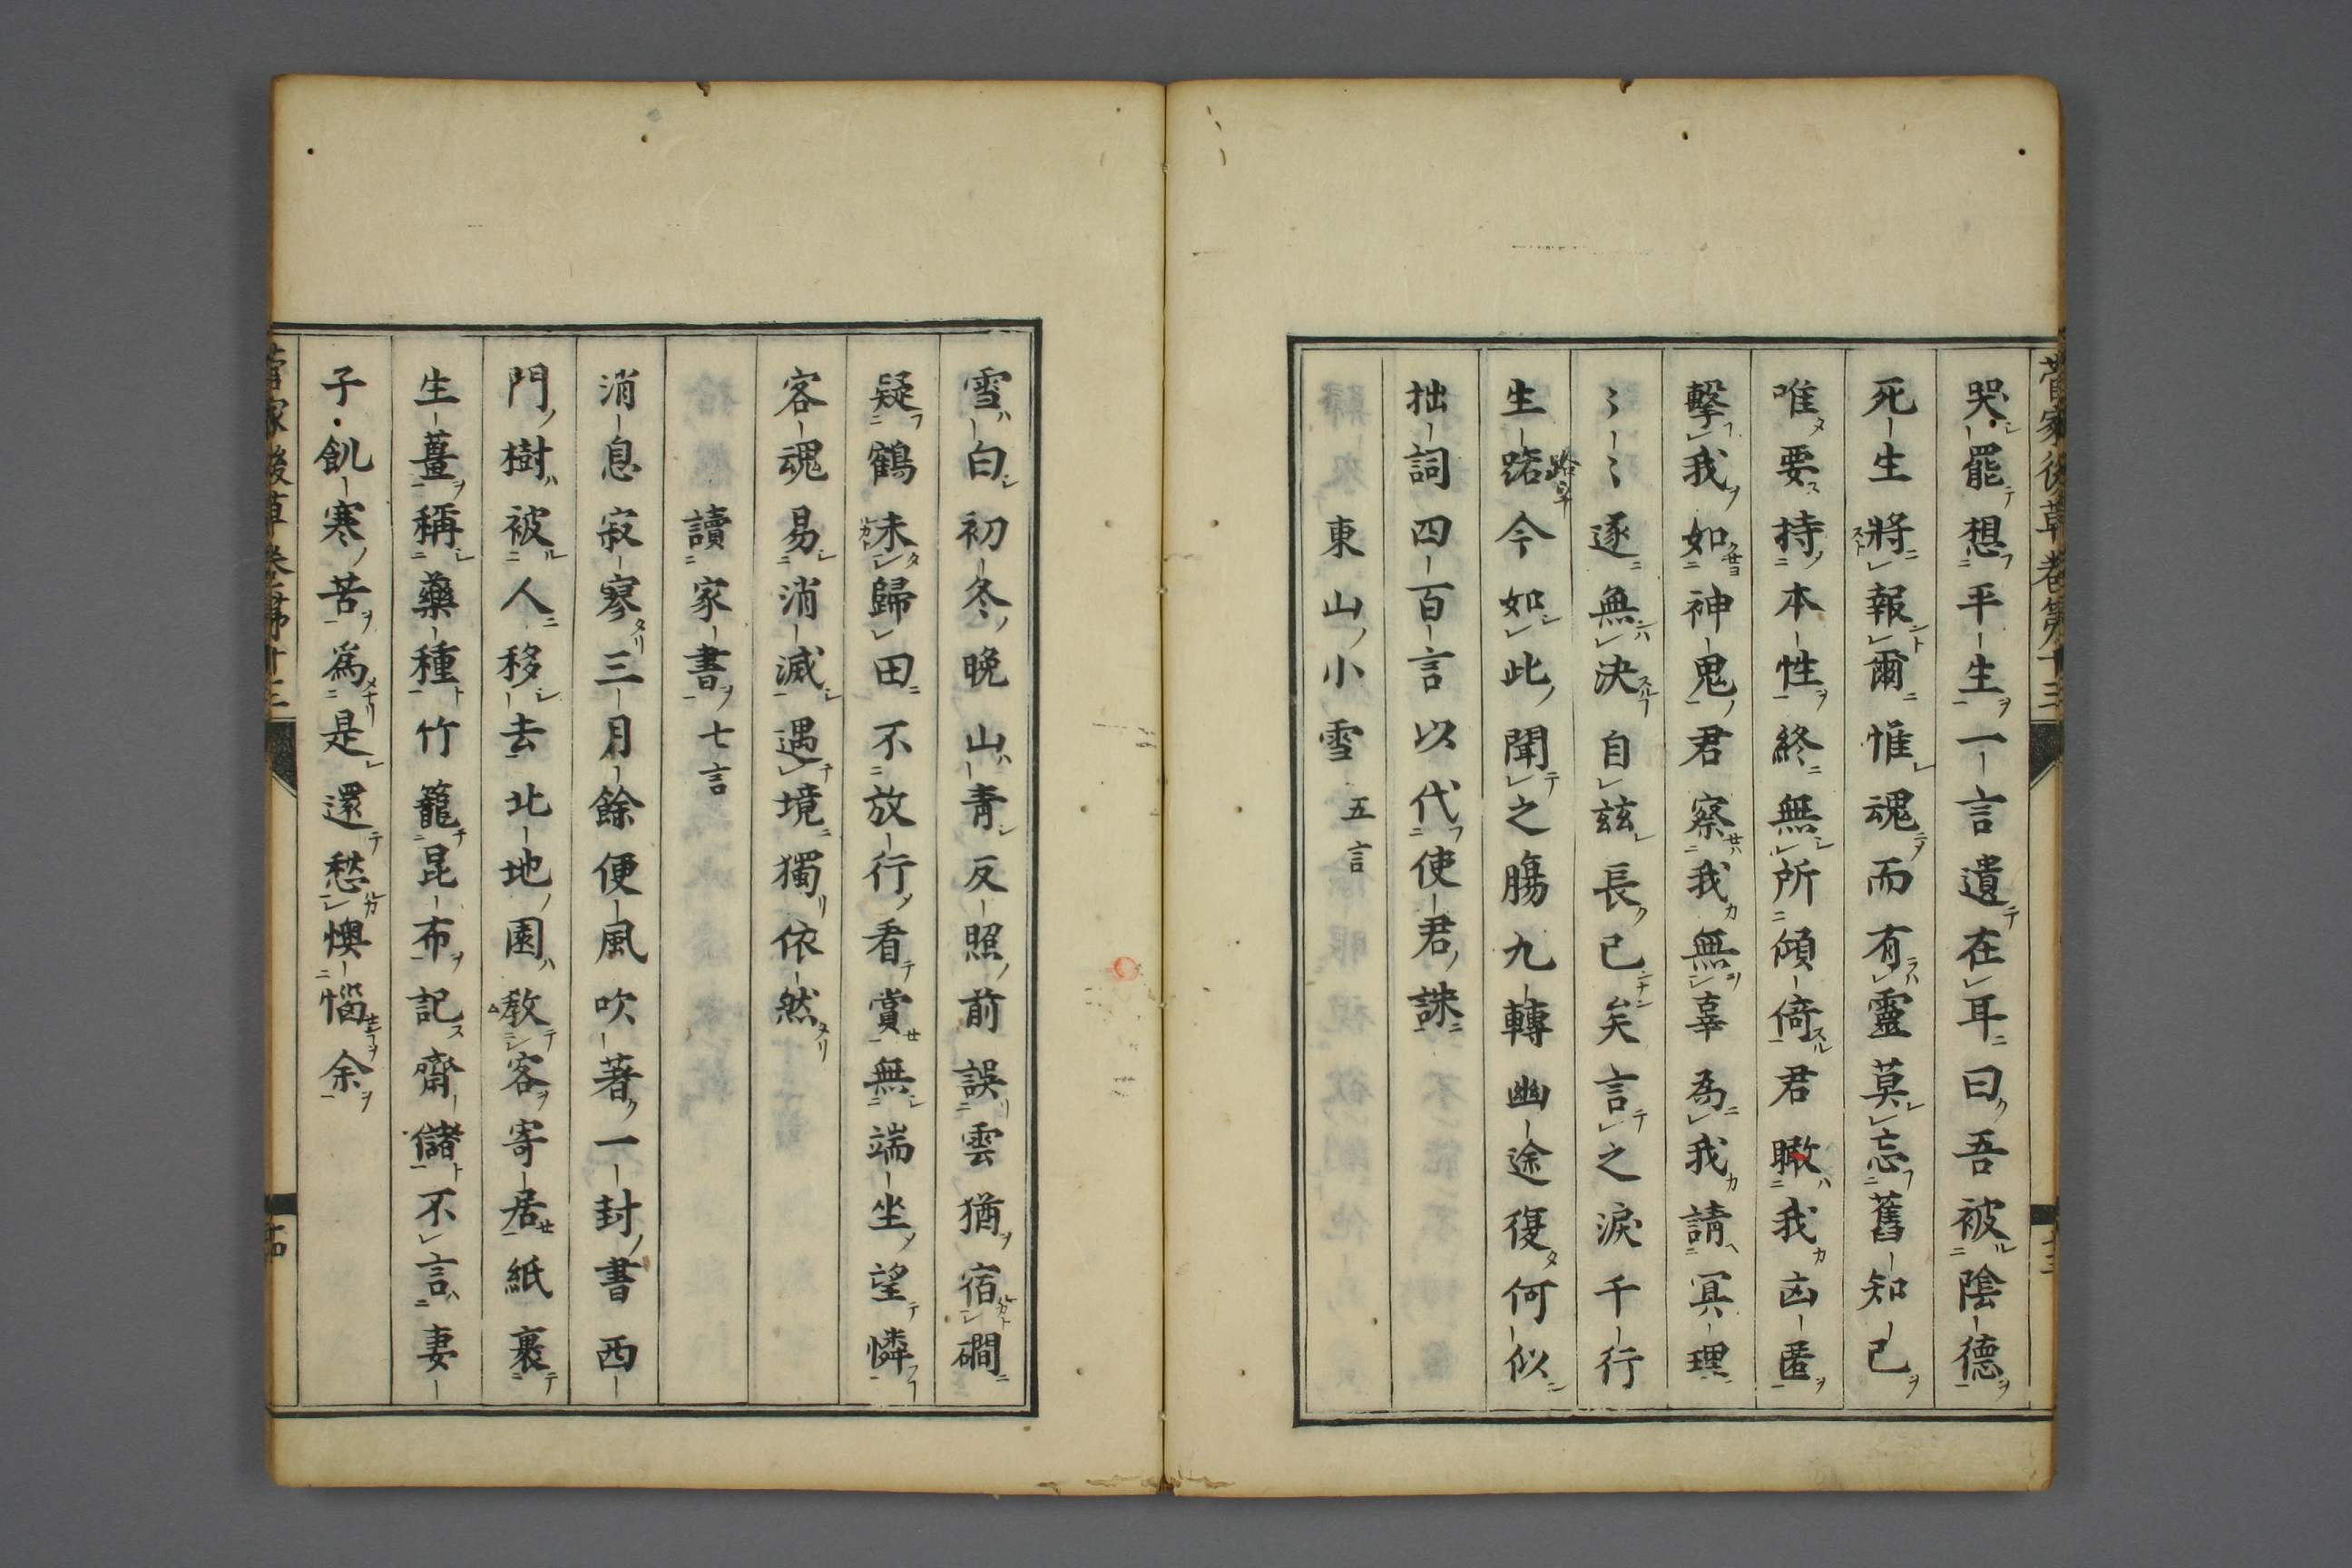 菅家後草卷第十三
哭罷想平生一言遺在耳曰吾被陰德
死生將報爾惟魂而有靈莫忘舊知己
唯要持本性終無所傾倚君瞰我凶匿
擊我如神鬼君察我無辜為我請冥理
〻〻遂無決自茲長已矣言之淚千行
生路今如此聞之腸九轉幽途復何似
拙詞四百言以代使君誄
東山小雪 五言
雪白初冬晚山青反照前誤雲猶宿磵
疑鶴未歸田不放行看賞無端坐望憐
客魂易消滅遇境獨依然
讀家書 七言
消息寂寥三月餘便風吹著一封書西
門樹被人移去北地園教客寄居紙裹
生薑稱藥種竹籠昆布記齋儲不言妻
子飢寒苦為是還愁懊惱余
菅家後草卷第十三